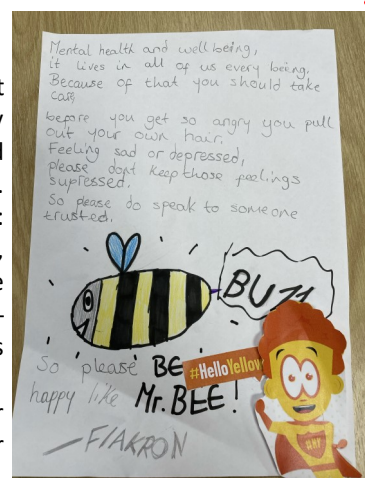 Mental health and well being,
it lives in all of us every being,
Because of that you should take
care,
before you get so angry you pull
out your own hair.
Feeling sad or depressed,
please dont keep those feelings
supressed.
So please do speak to someone
trusted.
BUZZ
So please BE
#HelloYellow
happy like Mr.BEE!
FIAKRON